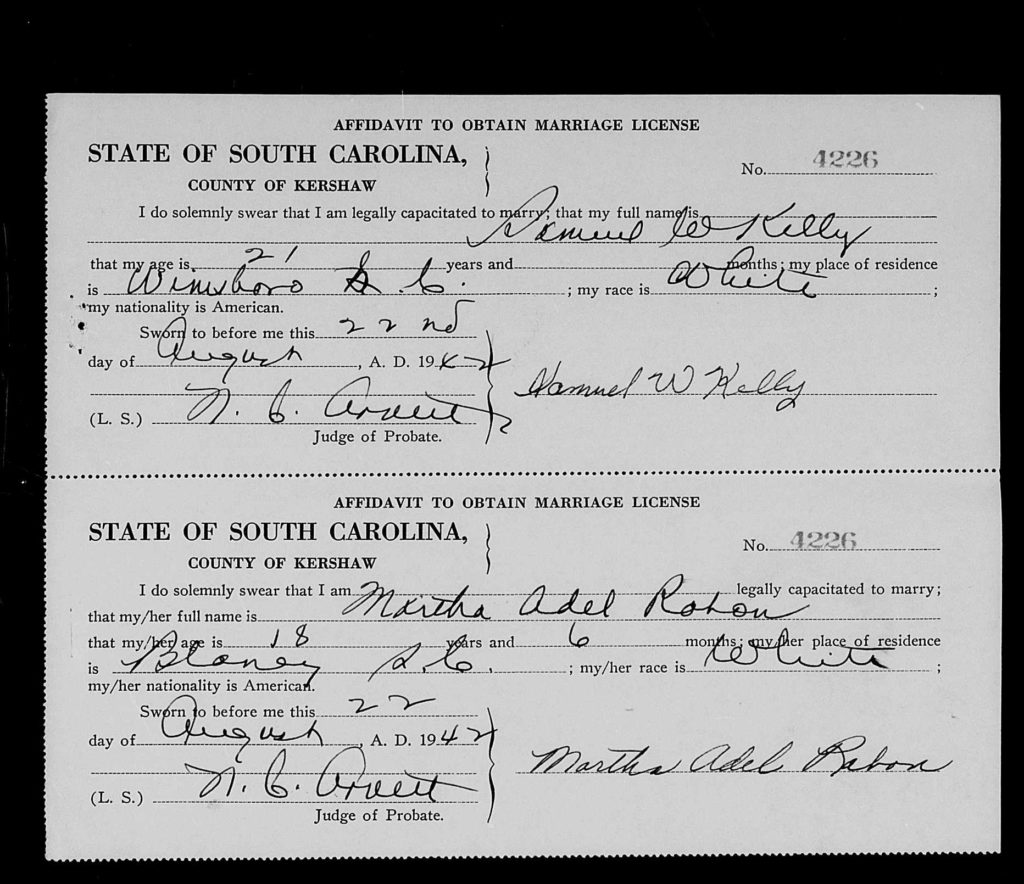 AFFIDAVIT TO OBTAIN MARRIAGE LICENSE
STATE OF SOUTH CAROLINA,
No. 4226
COUNTY OF KERSHAW
I do solemnly swear that I am legally capacitated to marry; that my full name is
Samuel W Kelly
that my age is 21 years and months; my place of residence
is Winsboro S. C. ; my race is White ;
my nationality is American.
Sworn to before me this 22 nd
day of August , A. D. 1942
Samuel W Kelly
(L. S.) N. C. Arnett
Judge of Probate.
AFFIDAVIT TO OBTAIN MARRIAGE LICENSE
STATE OF SOUTH CAROLINA,
No. 4226
COUNTY OF KERSHAW
I do solemnly swear that I am legally capacitated to marry;
that my/her full name is Martha Adel Rabon
that my/her age is 18 years and 6 months; my/her place of residence
is Blaney S. C. ; my/her race is White ;
my/her nationality is American.
Sworn to before me this 22
day of August , A. D. 1942
Martha Adel Rabon
(L. S.) N. C. Arnett
Judge of Probate.